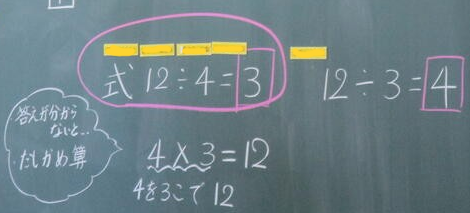 式 12÷4=3
12÷3=4
答えが分から
ないと…
たしかめ算
4×3=12
4を3こで12